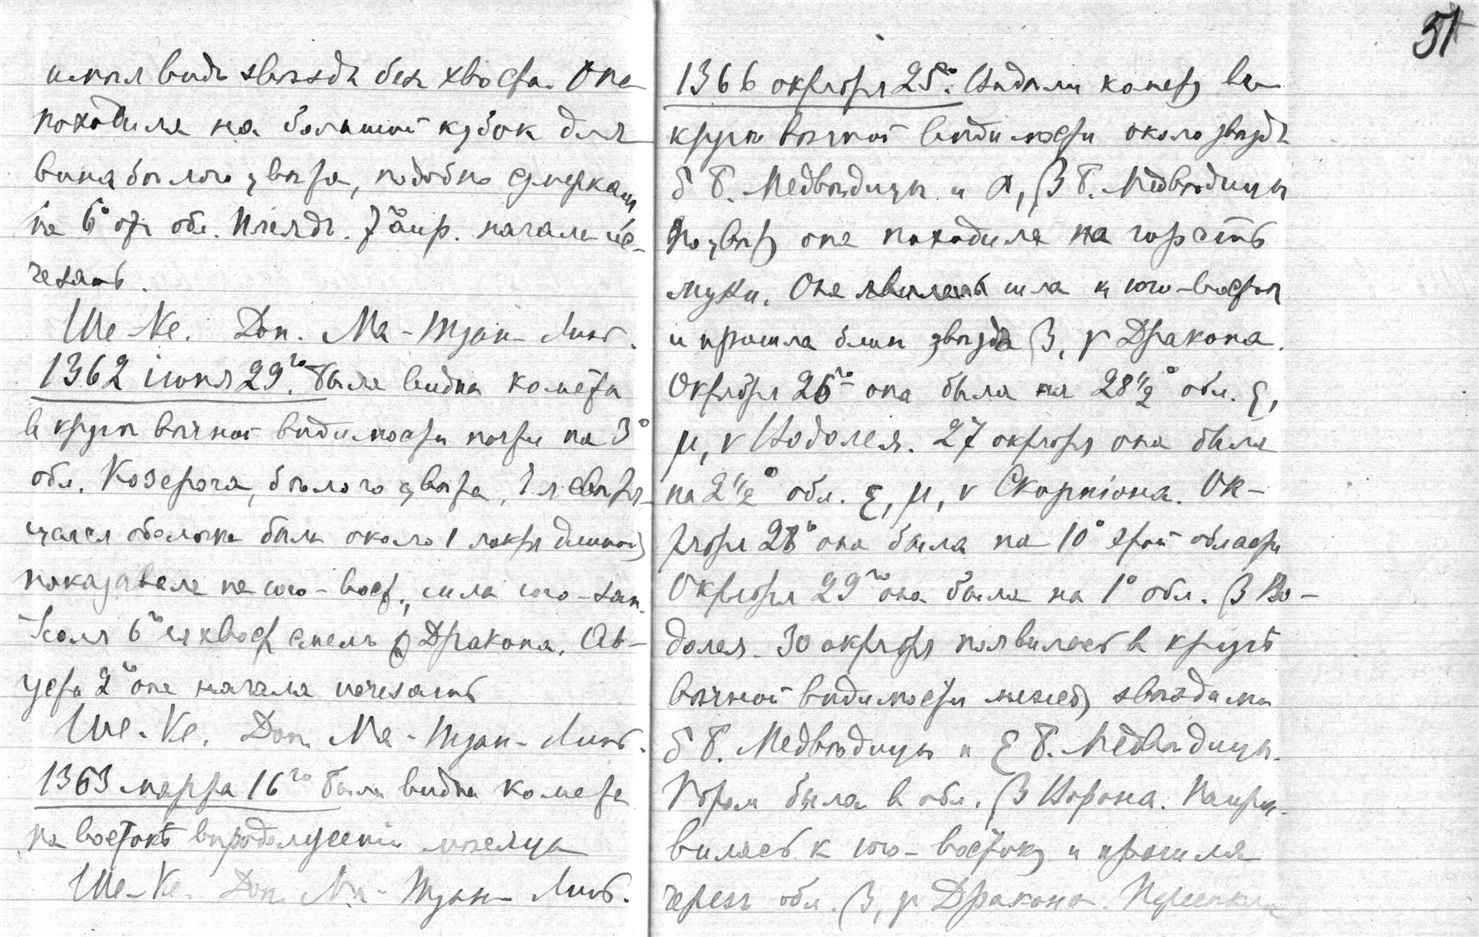 имѣл видъ звѣзды без хвоста. Она
походила на большой кубок для
вина бѣлого цвѣта, подобно сумеркам
на 6° от обл. Плеядъ. 7го апр. начала ис-
чезать.
Ше-Ке. Доп. Ма-Туан-Линь.
1362 июня 29го. Была видна комета
в кругѣ вѣчной видимости почти на 3°
обл. Козерога, бѣлого цвѣта,
оболочка была около 1 локтя длиной,
показавала на юго-вост., шла юго-зап.
Iюля 6го ея хвост Дракона. Ав-
густа 2го она начала исчезать
Ше-Ке. Доп. Ма-Туан-Линь.
1363 марта 16го была видна комета
на востокѣ впродолжении мѣсяца
Ше-Ке. Доп. Ма-Туан-Линь.
51
1366 октября 25го. Видѣли комету въ
кругѣ вѣчной видимости около звѣзды
δ Б. Медвѣдицы и α, β Б. Медвѣдицы
По цвѣту она походила на горсть
муки. Она шла к юго-востоку
и прошла близ звѣзды β, γ Дракона.
Октября 26го она была на 28 1/2° обл. ε,
μ, ν Водолея. 27 октября она была
на 2 1/2° обл. ε, μ, ν Скорпiона. Ок-
тября 28го она была на 10° этой области
Октября 29го она была на 1° обл. β Во-
долея. 30 октября появилась в кругѣ
вѣчной видимости между звѣздами
δ Б. Медвѣдицы и ε Б. Медвѣдицы.
Потом была в обл. β Ворона. Напра-
вилась к юго-востоку и прошла
черезъ обл. β, γ Дракона.